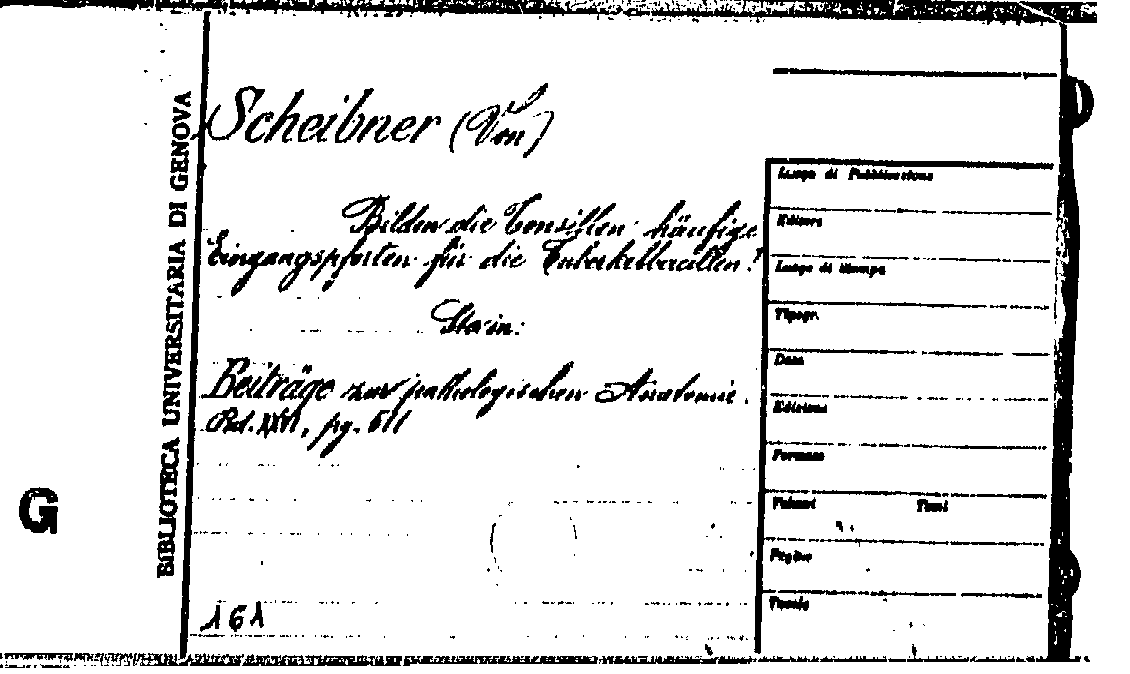 BIBLIOTECA UNIVERSITARIA DI GENOVA
G
Scheibner (Von)
Bilden die Tonsillen häufige
Eingangspforten für die Tuberkelbacillen?
Sta in:
Beiträge zur pathologischen Anatomie.
Bd. XXVI, pg. 511
161
Luogo di Pubblicazione
Editore
Luogo di stampa
Tipogr.
Data
Edizione
Formato
Volumi Tomi
Pagine
Tavole